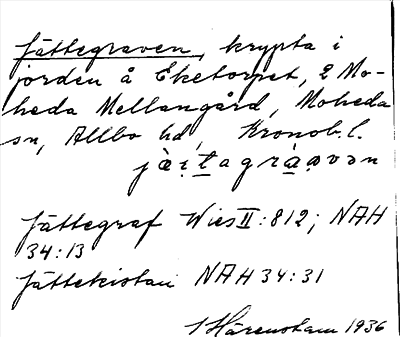 Jättegraven, krypta i
jorden å Eketorpet, 2 Mo-
heda Mellangård, Moheda
sn, Allbo hd, Kronob. l.
Jättegraf Wies II: 812; NAH
34:13
Jättekistan NAH 34:31
Härenstam 1936